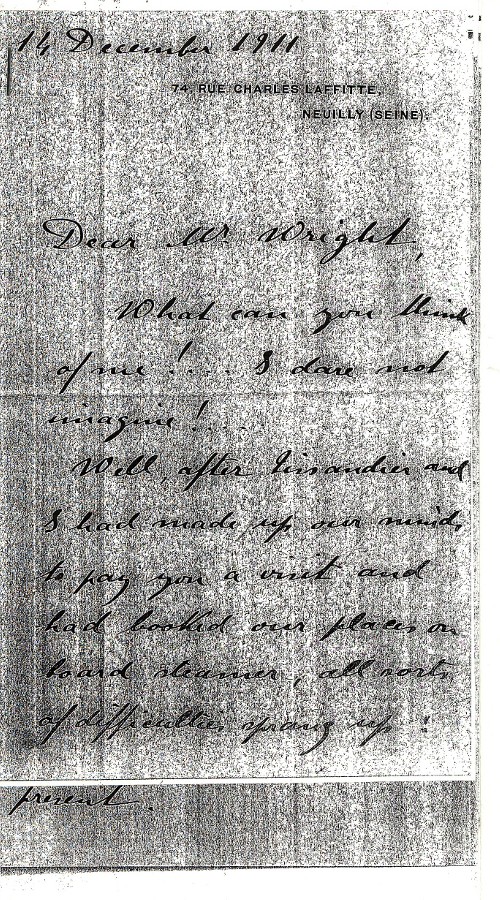 14 December 1911
74, RUE CHARLES LAFFITTE,
NEUILLY (SEINE).
Dear Mr. Wright,
What can you think
of me !.... I dare not
imagine !...
Well, after Tissandier and
I had made up our minds
to pay you a visit and
had booked our places on
board steamer, all sorts
of difficulties sprang up !
present.